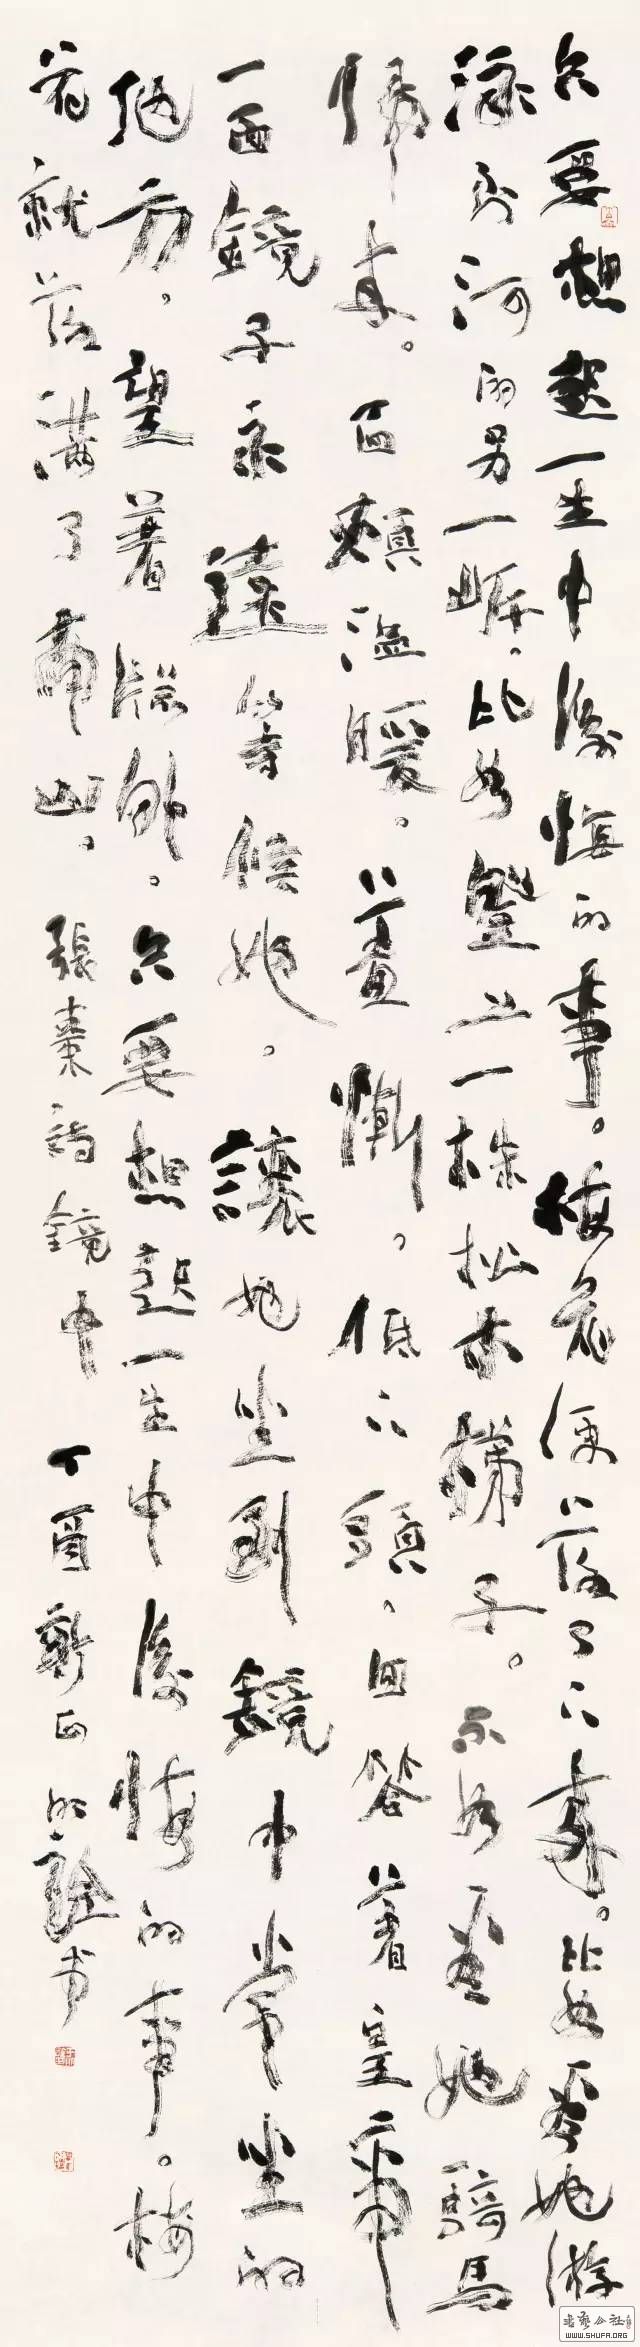 只要想起一生中後悔的事。梅花便落了下來。比如看她游
泳到河的另一岸，比如登上一株松木梯子。不如看她騎馬
歸來。面頰溫暖。羞慚。低下頭，回答着皇帝
一面鏡子永遠等候她。讓她坐到鏡中常坐的
地方。望着窗外。只要想起一生中後悔的事。梅
花就落滿了南山。張棗詩鏡中 丁酉新正 書
WWW.SHUFA.ORG